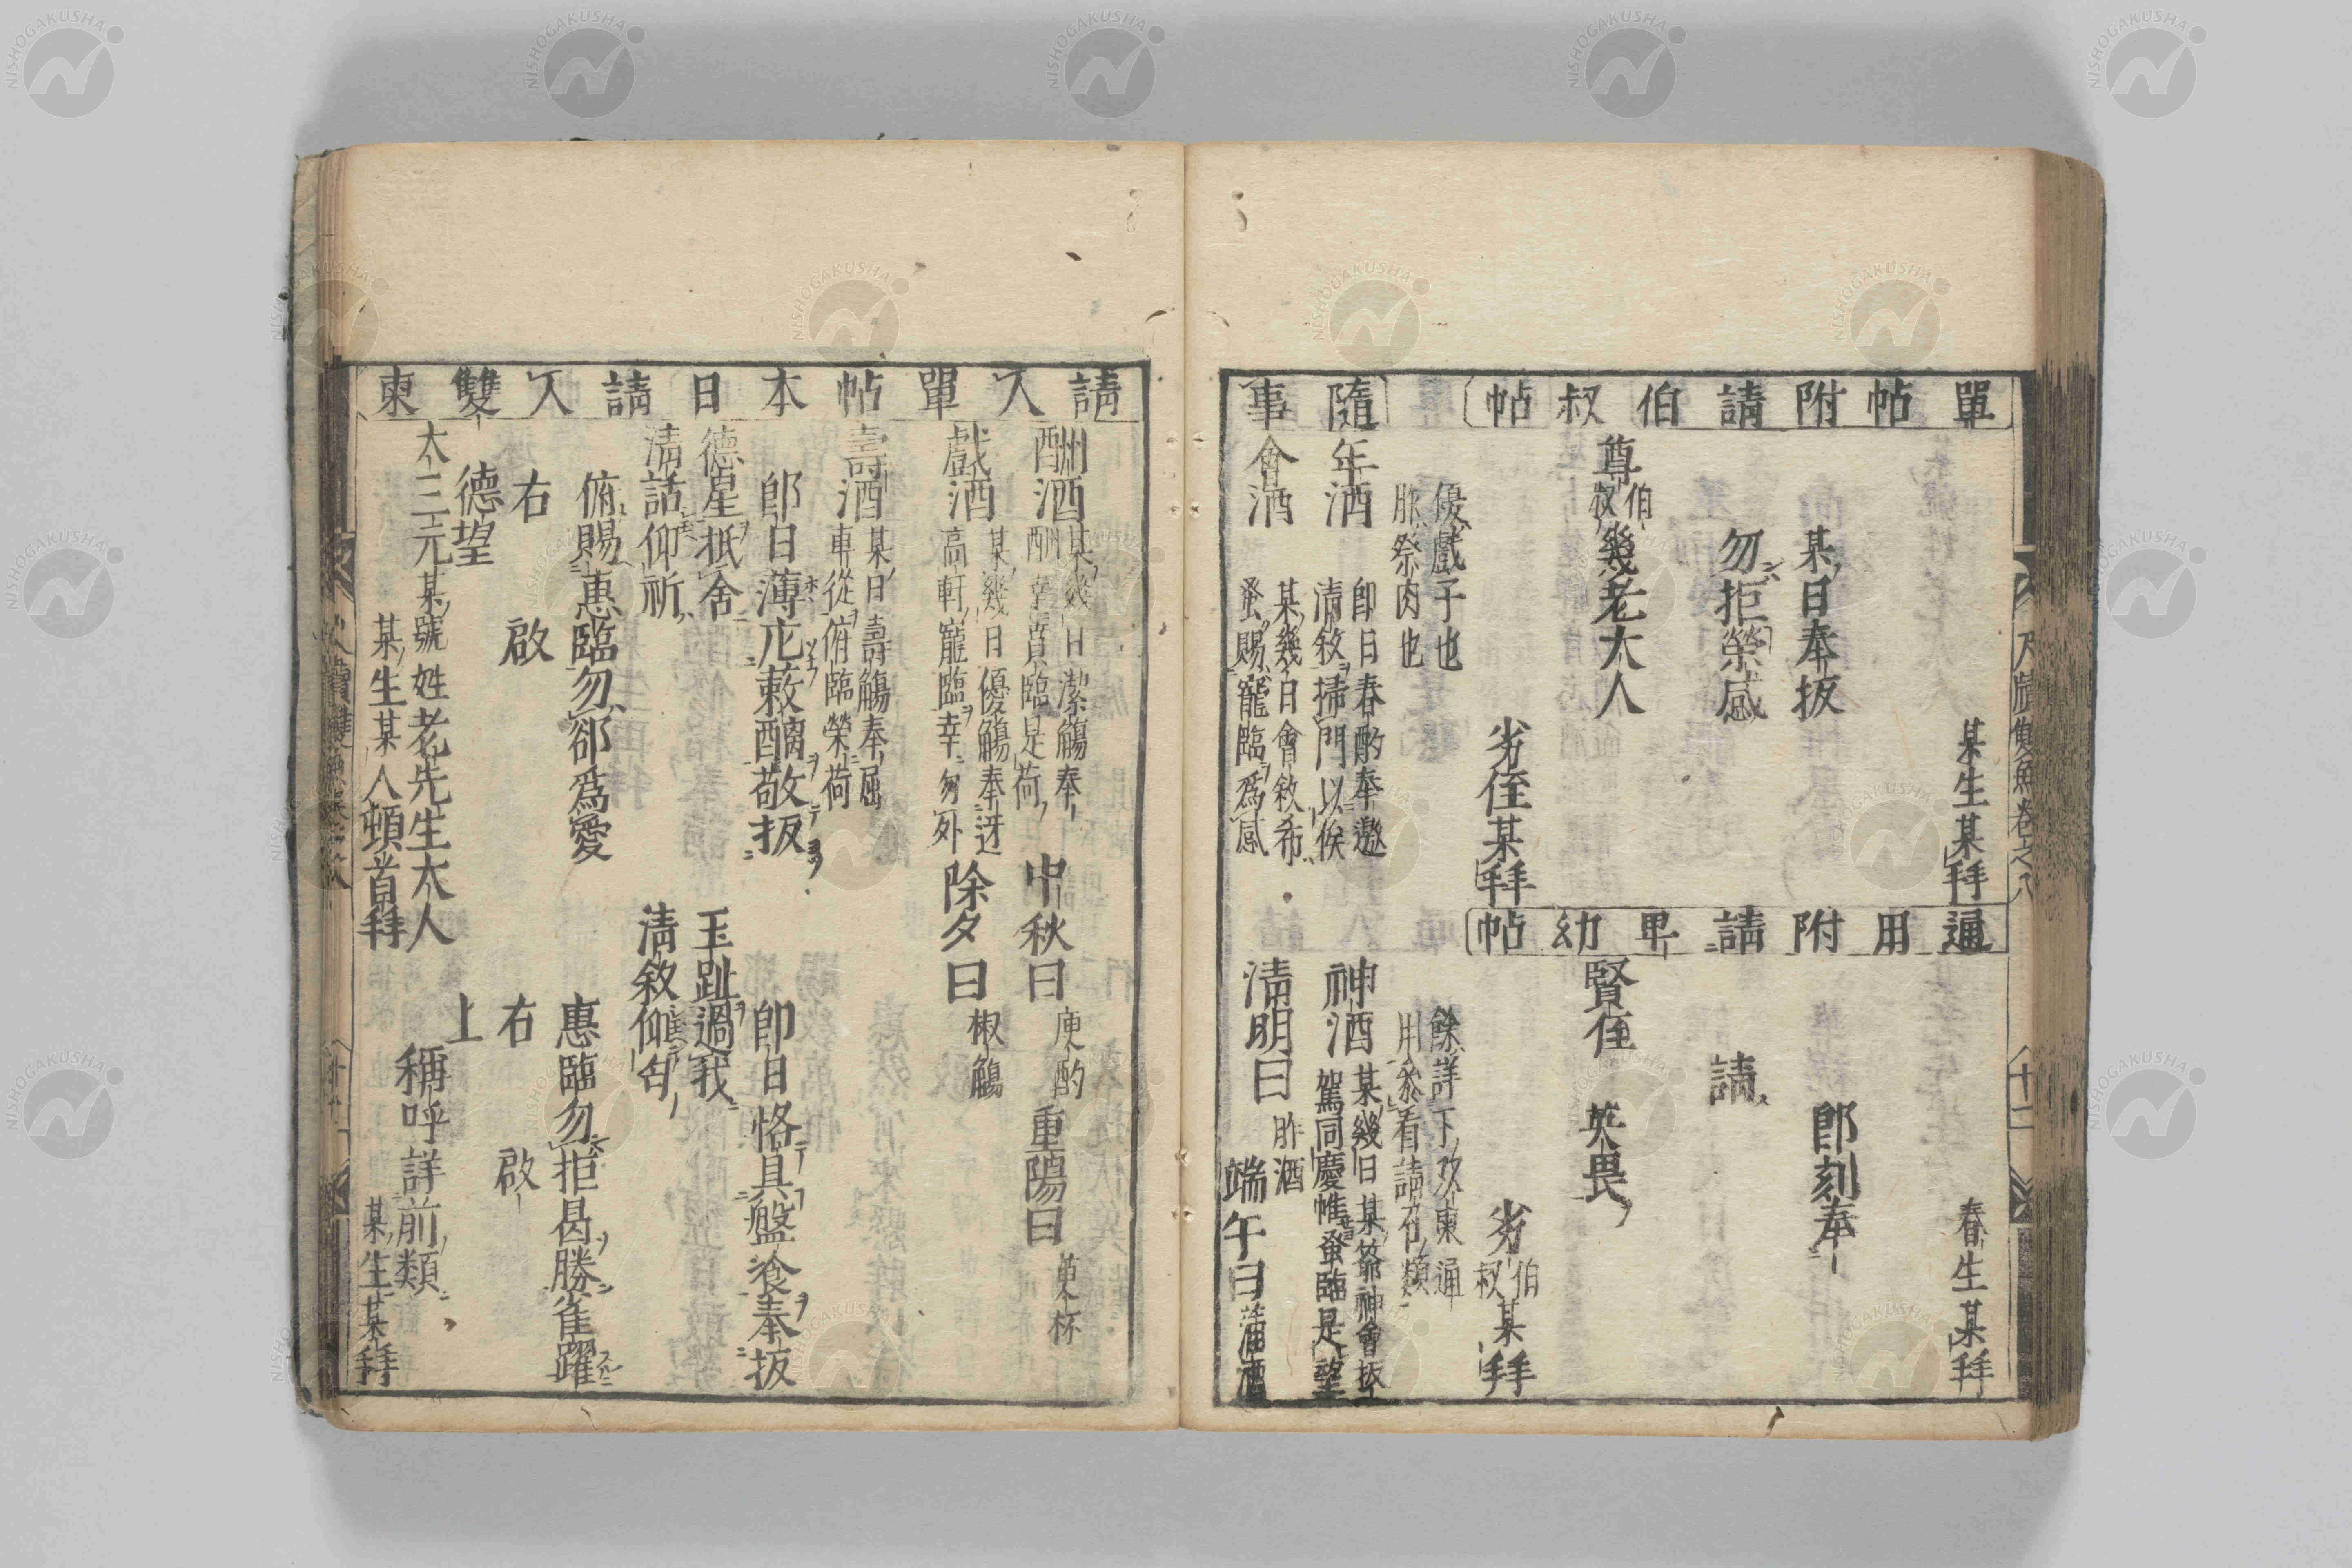 單帖附請伯叔帖
某日奉扳
勿拒榮感
尊伯叔幾老大人
劣侄某拜
某生某拜
通用附請卑幼帖
春生某拜
即刻奉
請
賢侄 英畏
劣伯叔某拜
隨事
優戲子也
胙祭肉也
年酒 即日春酌奉邀
清敘掃門以俟
會酒 某幾日會敘希
蚤賜寵臨爲感
餘詳下攷柬通
用叅看請召類
神酒 某幾日某爺神會扳
駕同慶惟蚤臨是望
清明日 胙酒
端午日 蒲酒
尺牘雙魚卷之八
十二
請人單帖
酬酒 某幾日潔觴奉
酬幸賁臨是荷
中秋日 庚酌
重陽日 萸杯
戲酒 某幾日優觴奉迓
高軒寵臨幸勿外
除夕日 椒觴
壽酒 某日壽觴奉屈
車從俯臨榮荷
本日請人雙柬
即日薄庀蔌醑敬扳
德星抵舍
清話仰祈
俯賜惠臨勿郤爲愛
右 啟
德望
大三元某號姓老先生大人
某生某人頓首拜
即日恪具盤飡奉扳
玉趾過我
清敘傾句
惠臨勿拒曷勝雀躍
右 啟
上
稱呼詳前類
某生某拜
NISHOGAKUSHA